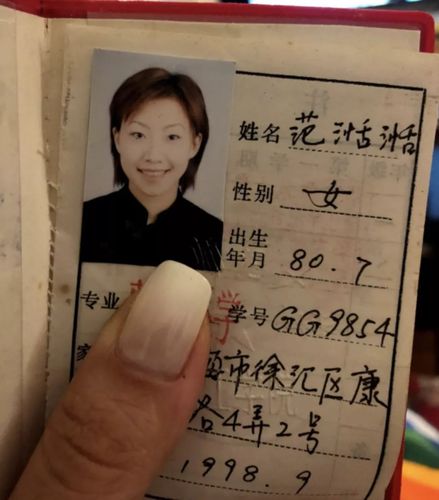 姓名 范湉湉
性别 女
出生
年月 80.7
专业 学 学号 GG9854
市徐汇区康
4弄2号
1998.9